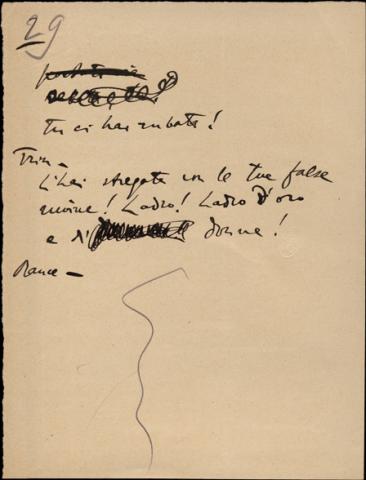 29
Tu ci hai rubato!
Trin —
L'hai stregata con le tue false
moine! Ladro! Ladro d'oro
e di donne!
Rance —